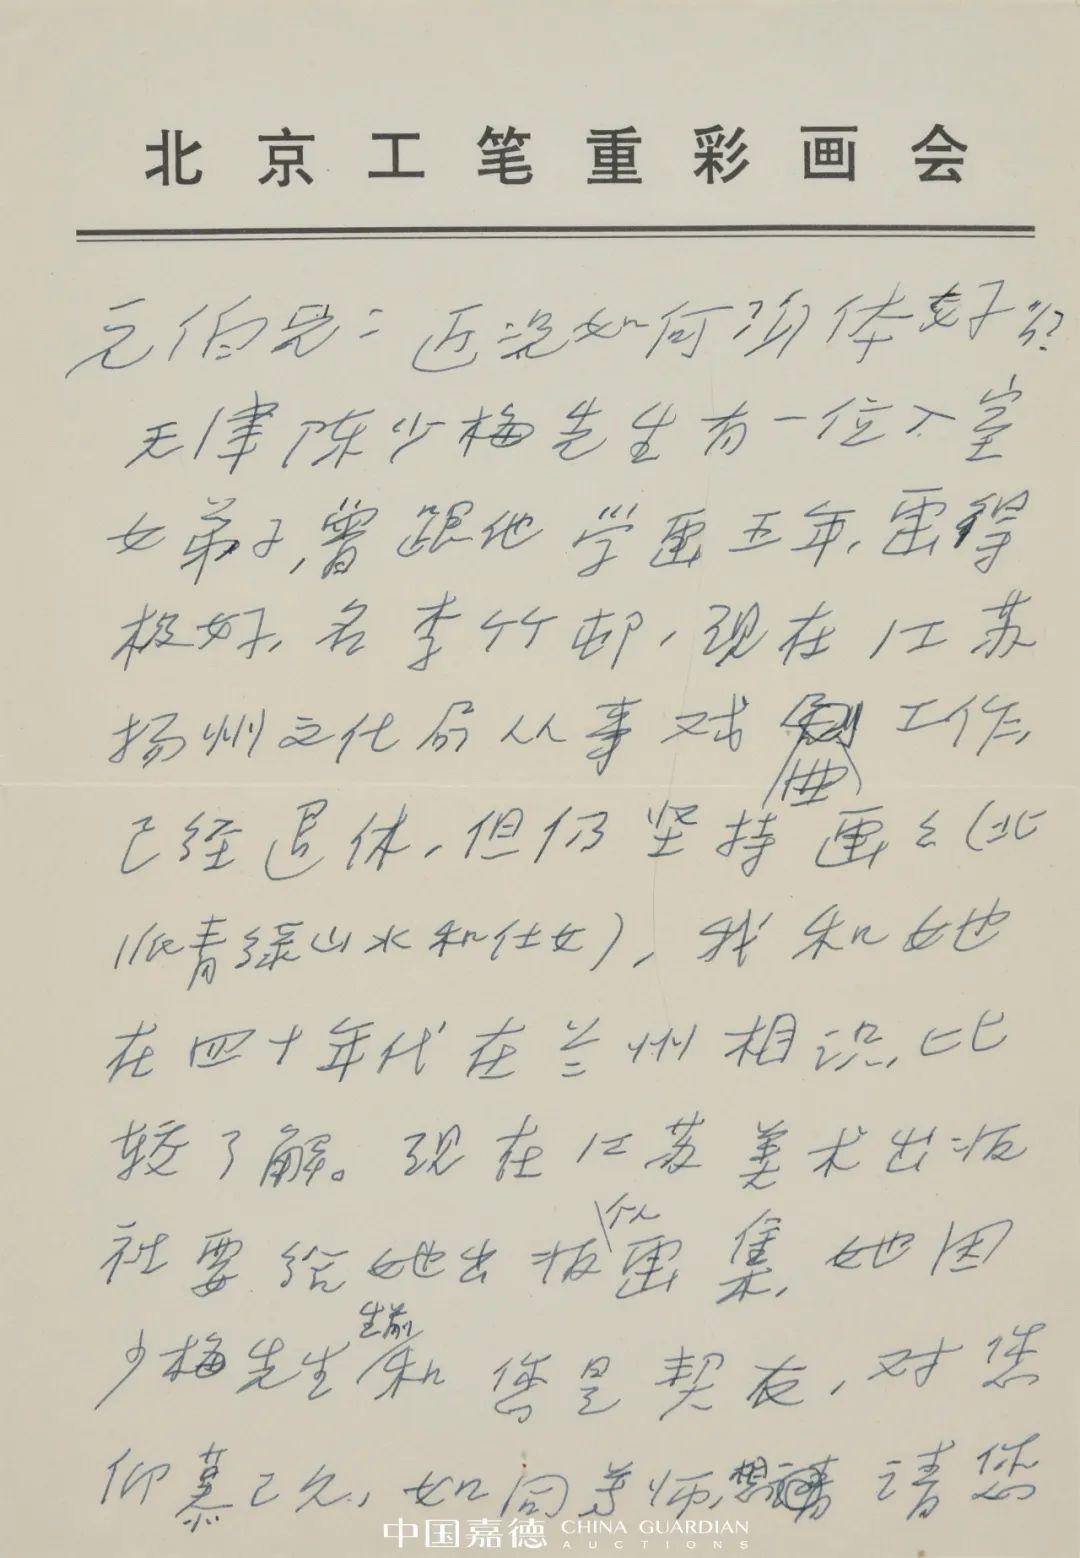 北京工笔重彩画会
元伯兄：近况如何身体好吗？
天津陈少梅先生有一位入室
女弟子，曾跟他学画五年，画得
极好，名李竹邨，现在江苏
扬州文化局从事戏曲工作，
已经退休，但仍坚持画画（北
派青绿山水和仕女），我和她
在四十年代在兰州相识，比
较了解。现在江苏美术出版
社要给她出版个人画集，她因
少梅先生生前和您是契友，对您
仰慕已久，如同尊师，想请您
中国嘉德 CHINA GUARDIAN AUCTIONS